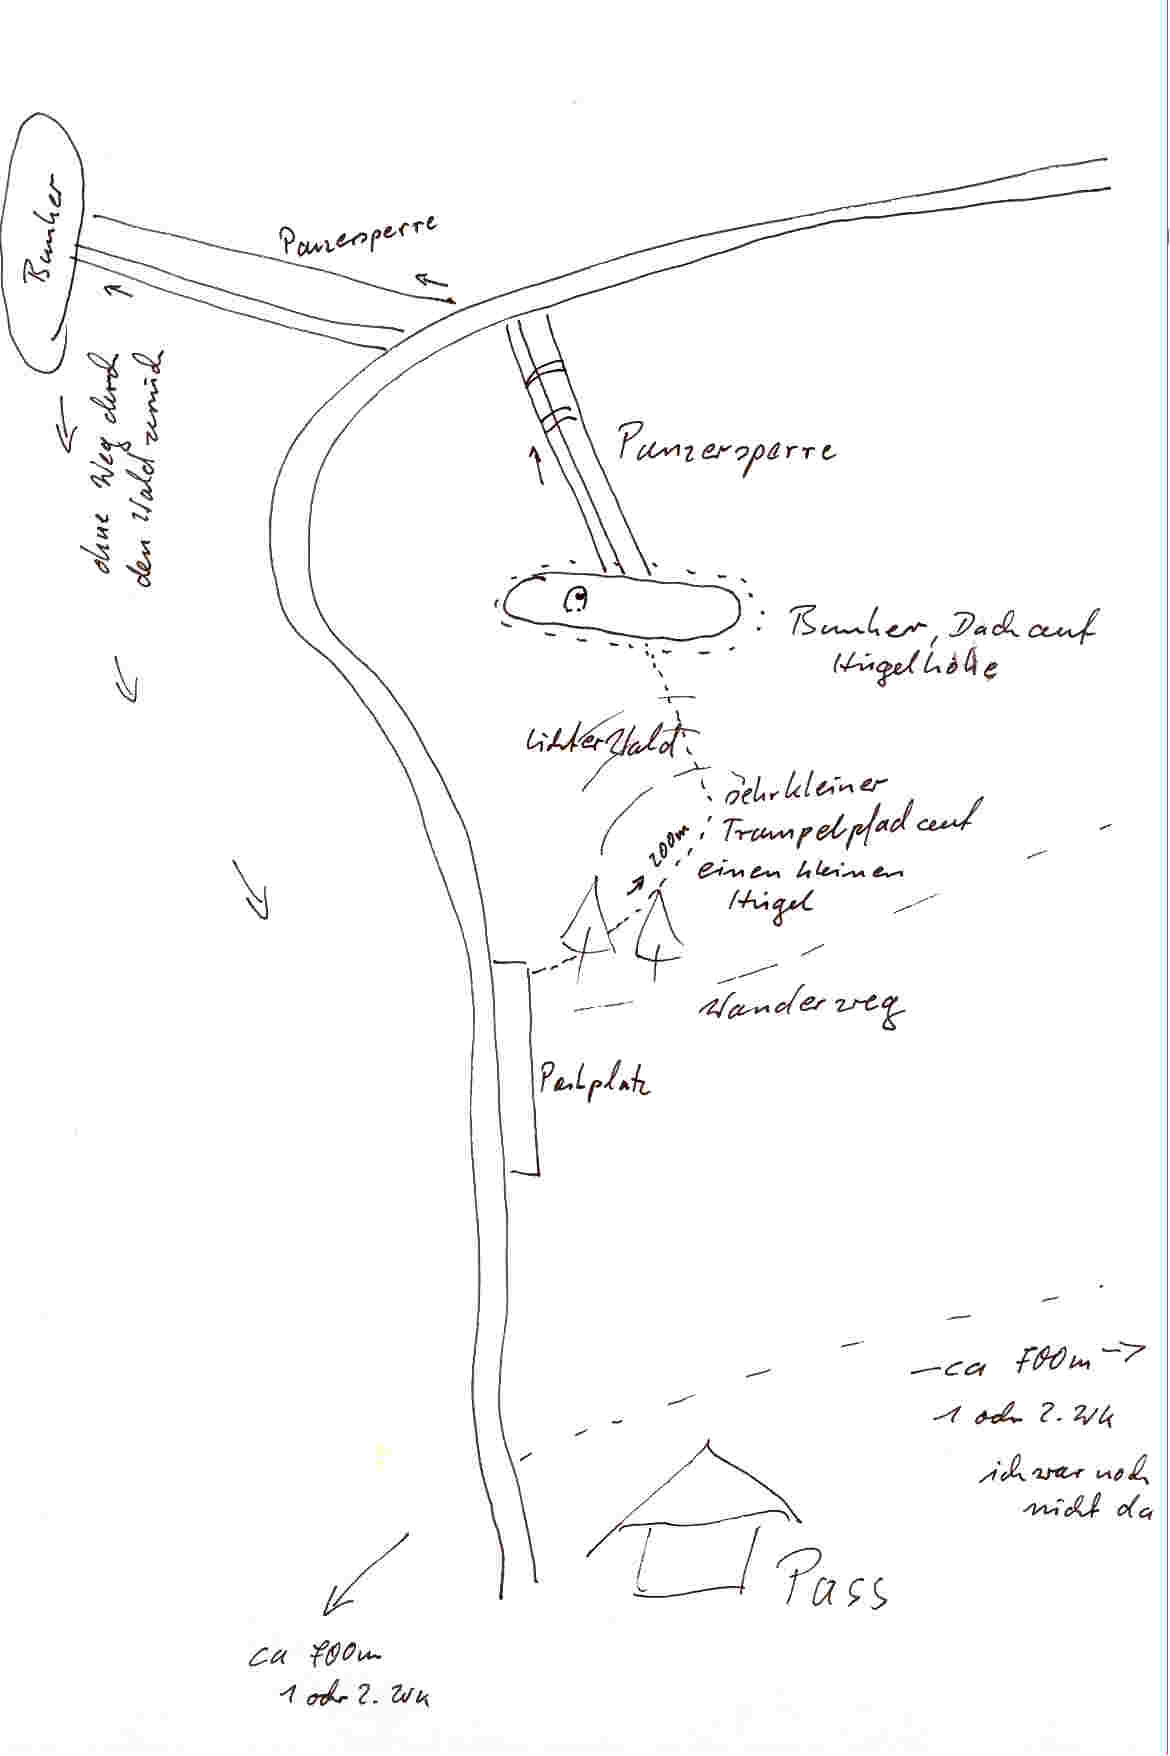 Bunker
Panzersperre
ohne Weg durch
den Wald zurück
Panzersperre
Bunker, Dach auf
Hügelhöhe
lichter Wald
sehr kleiner
Trampelpfad auf
einen kleinen
Hügel
200m
Wanderweg
Parkplatz
ca 700m
1 oder 2. Wk
ich war noch
nicht da
Pass
ca 700m
1 oder 2. Wk